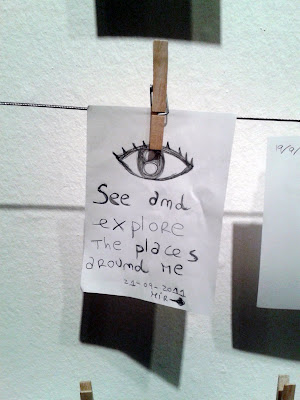 See and
explore
The places
around me
21-09-2011
MiR